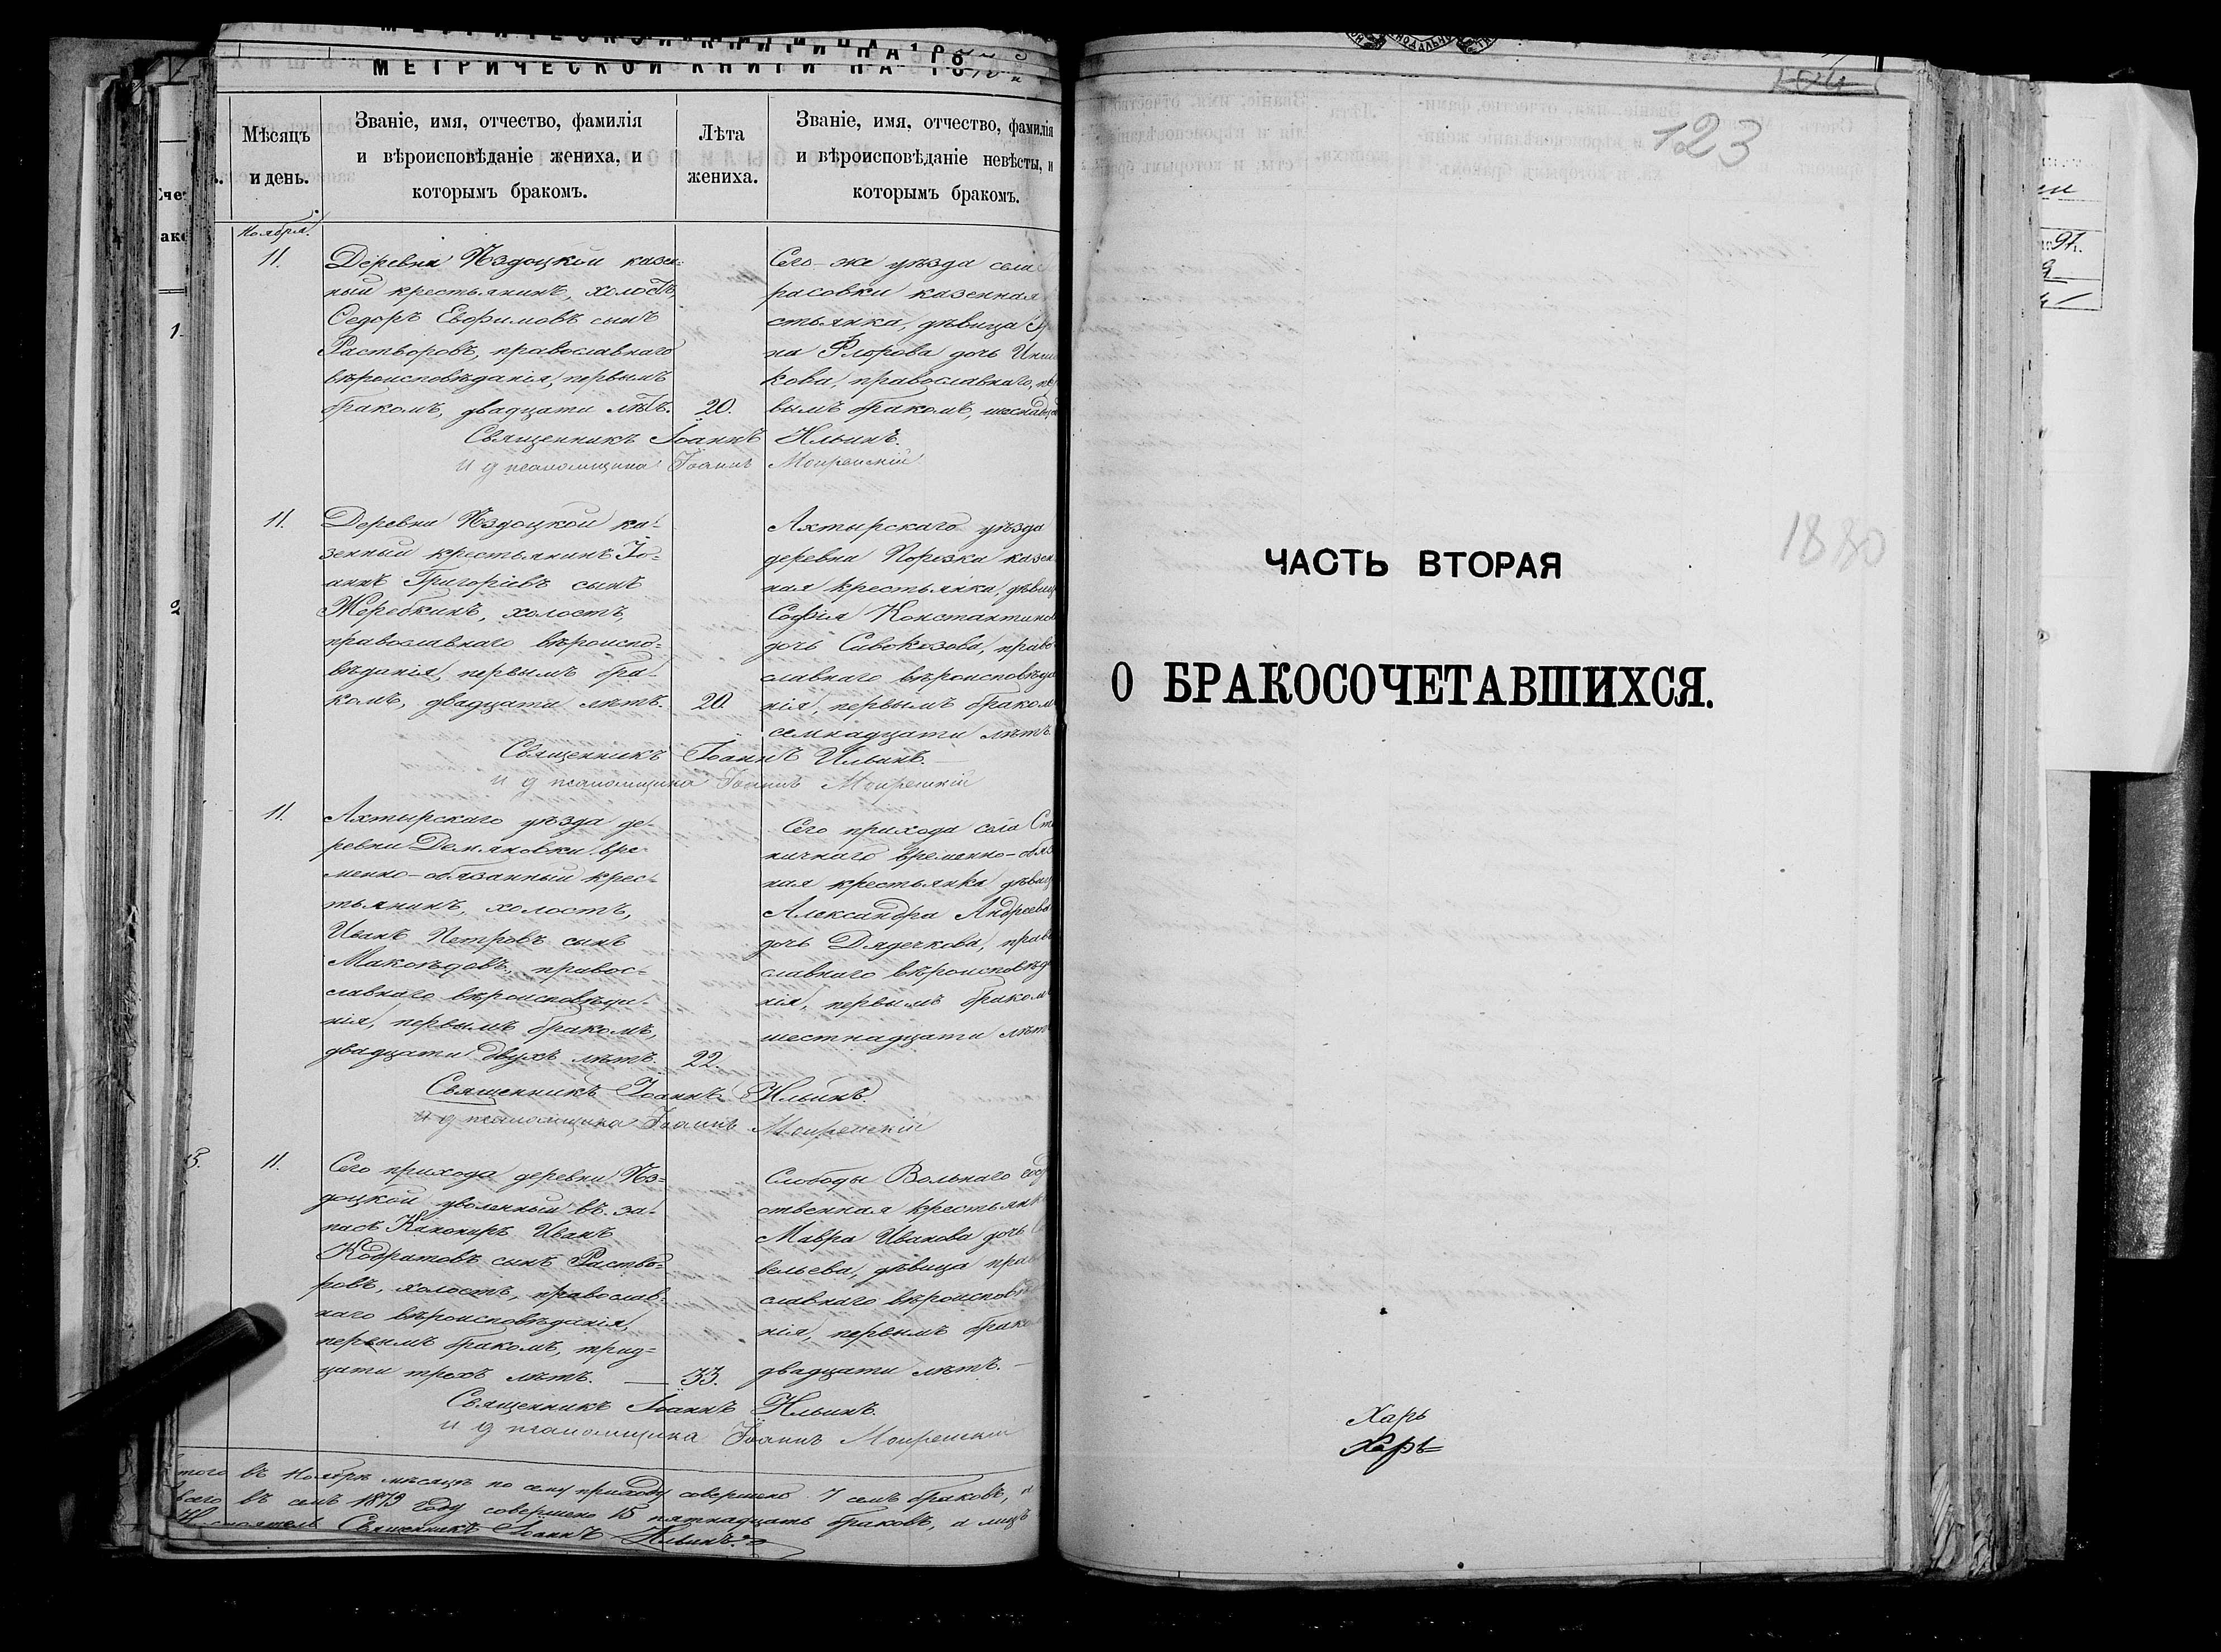 МЕТРИЧЕСКОЙ КНИГИ НА 18
Мѣсяцъ и день.
Званіе, имя, отчество, фамилія
и вѣроисповѣданіе жениха, и
которымъ бракомъ.
Лѣта
жениха.
Званіе, имя, отчество, фамилія
и вѣроисповѣданіе невѣсты, и
которымъ бракомъ.
Ноября.
11.
Деревни Пздоцкой казен-
ный крестьянинъ, холостъ,
Ѳедоръ Евфимовъ сынъ
Растворовъ, православнаго
вѣроисповѣданія, первымъ
бракомъ, двадцати лѣтъ.
20.
Сего-же уѣзда села
расовки казенная
стьянка, дѣвица
на Флорова дочь
кова, православнаго, пер
вымъ бракомъ,
Священникъ Іоаннъ Ильинъ.
И д псаломщика Іоаннъ
11.
Деревни Пздоцкой ка-
зенный крестьянинъ Іо-
аннъ Григоріевъ сынъ
Жеребкинъ, холостъ,
православнаго вѣроиспо-
вѣданія, первымъ бра-
комъ, двадцати лѣтъ.
20.
Ахтырскаго уѣзда
деревни Порозка казен
ная крестьянка, дѣвиц
Софія Константинов
дочь Сивокозова, право
славнаго вѣроисповѣда
нія, первымъ браком
семнадцати лѣтъ.
Священникъ Іоаннъ Ильинъ.
И д псаломщика Іоаннъ
11.
Ахтырскаго уѣзда де-
ревни Демяновки вре-
менно-обязанный крес-
тьянинъ, холостъ,
Иванъ Петровъ сынъ
Макоѣдовъ, правос-
славнаго вѣроисповѣда-
нія, первымъ бракомъ,
двадцати двухъ лѣтъ.
22.
Сего прихода села Ст
ничнаго временно-обяз
ная крестьянка дѣвиц
Александра Андреева
дочь Дядечкова, прав
славнаго вѣроисповѣд
нія, первымъ браком
шестнадцати лѣт
Священникъ Іоаннъ Ильинъ.
И д псаломщика Іоаннъ
11.
Сего прихода деревни Пз-
доцкой уволенный въ за-
пасъ Канониръ Иванъ
Кодратовъ сынъ Раство-
ровъ, холостъ, православ-
наго вѣроисповѣданія,
первымъ бракомъ, трид-
цати трехъ лѣтъ.
33.
Слободы Вольнаго
ственная крестьянк
Мавра Иванова дочь
вельева, дѣвица прав
славнаго вѣроисповѣд
нія, первымъ браком
двадцати лѣтъ.
Священникъ Іоаннъ Ильинъ.
И д псаломщика Іоаннъ
того въ Ноябрѣ мѣсяцѣ по сему приходу совершено 7 семь браковъ, а
всего въ семъ 1879 году совершено 15 пятнадцать браковъ, а лицъ
Священникъ Іоаннъ Ильинъ.
123
1880
ЧАСТЬ ВТОРАЯ
О БРАКОСОЧЕТАВШИХСЯ.
Харь
Харь=